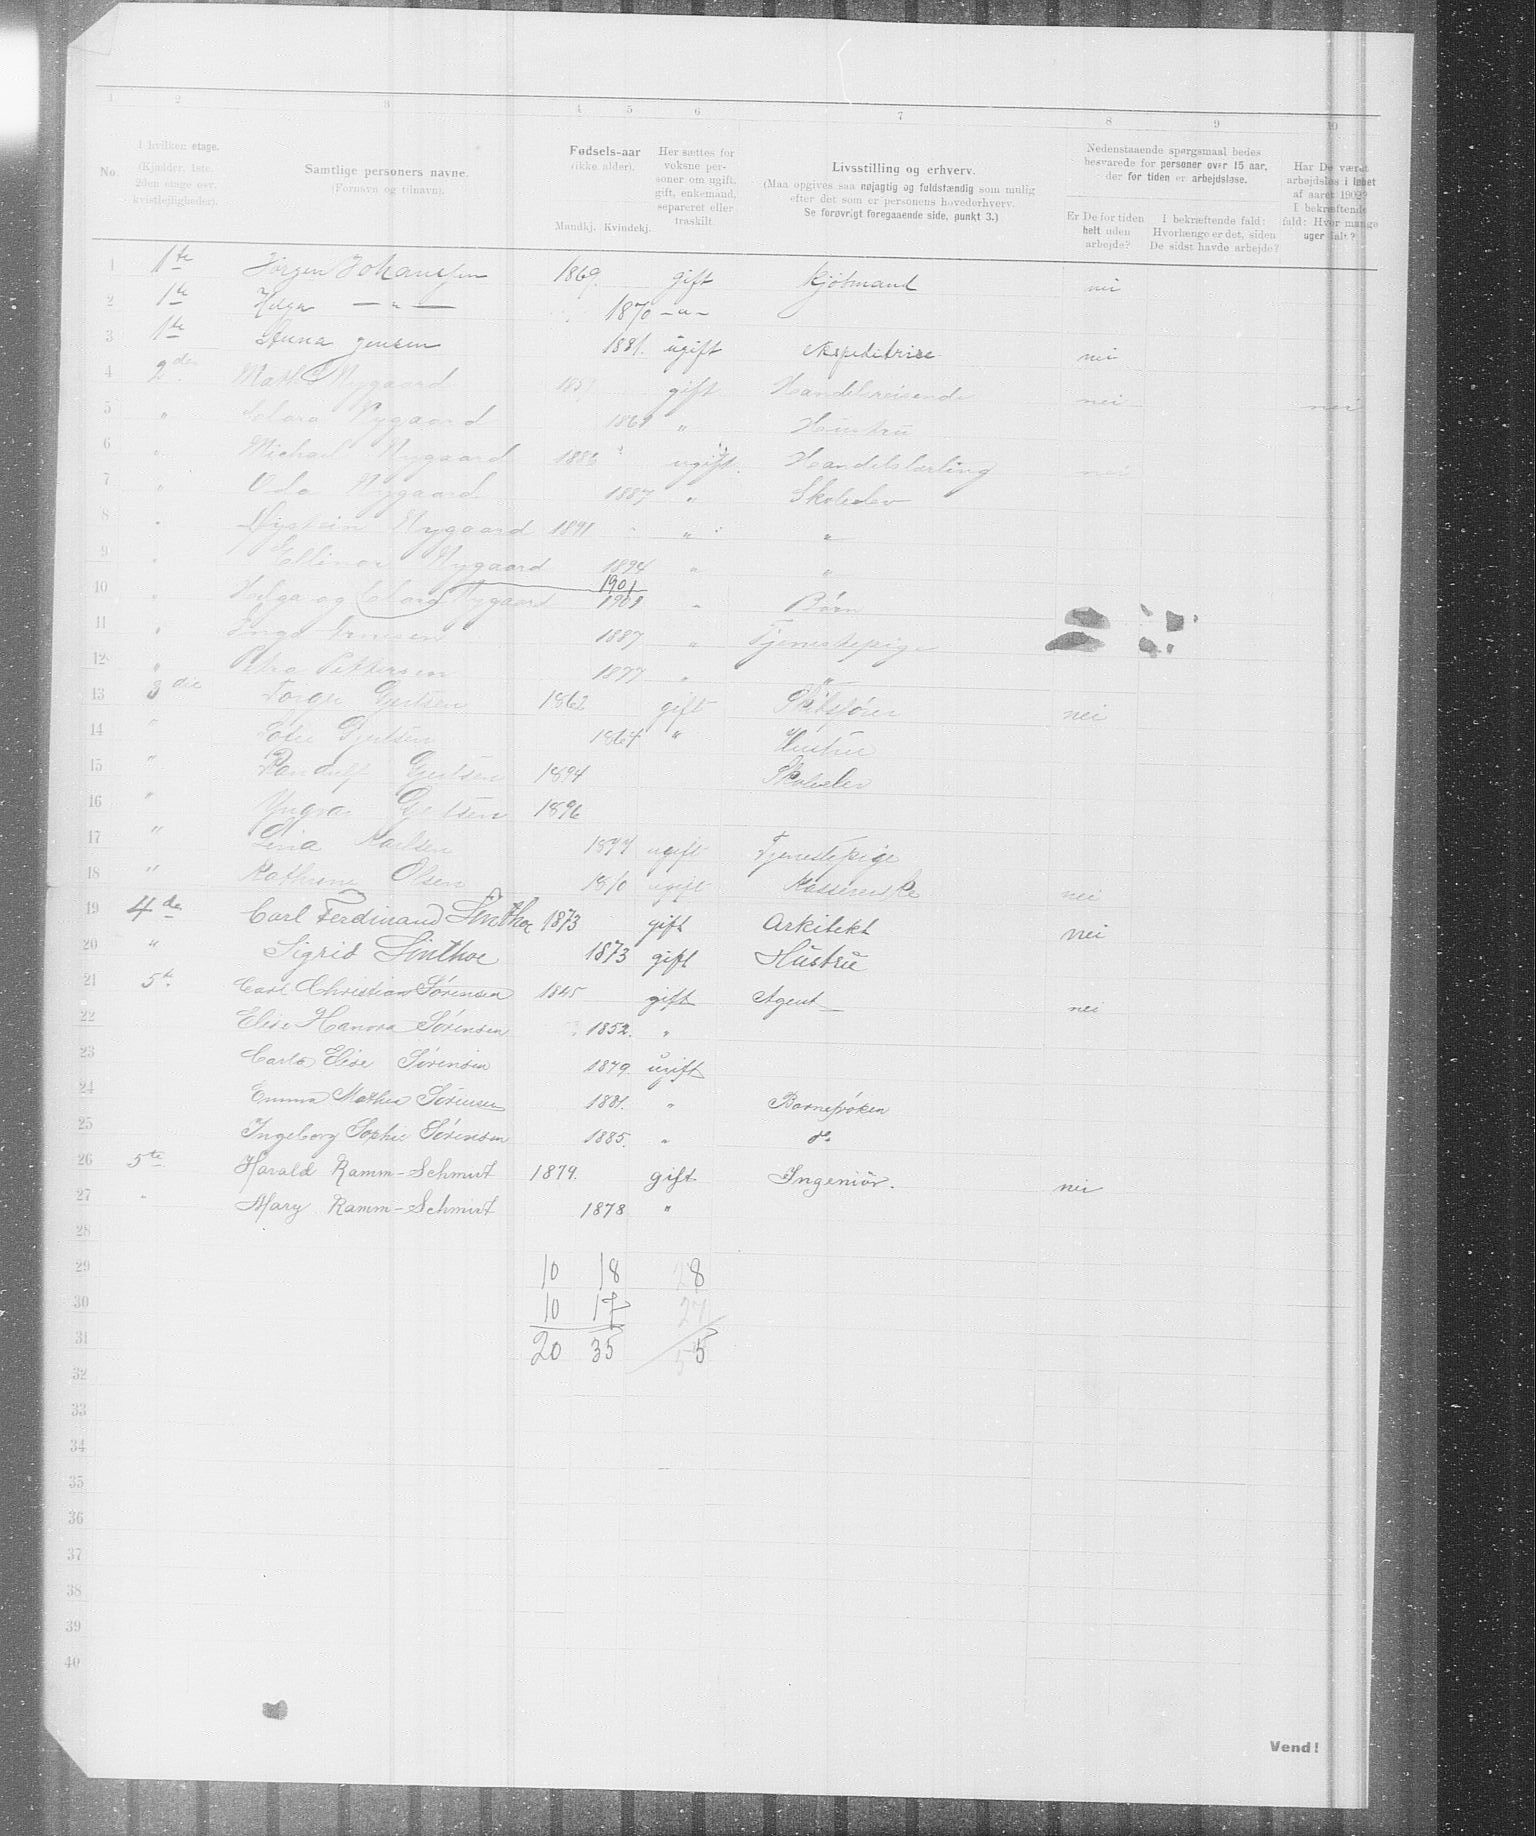 1 2 3 4 5 6 7 8 9 10
No.
I hvilken etage. (Kjælder, 1ste, 2den etage osv. kvistleiligheder).
Samtlige personers navne. (Fornavn og tilnavn).
Fødsels-aar (ikke alder). Mandkj. Kvindekj.
Her sættes for voksne personer om ugift, gift, enkemand, separeret eller fraskilt.
Livsstilling og erhverv. (Maa opgives saa nøjagtig og fuldstændig som mulig efter det som er personens hovederhverv. Se forøvrigt foregaaende side, punkt 3.)
Nedenstaaende spørgsmaal bedes besvarede for personer over 15 aar, der for tiden er arbejdsløse.
Er De for tiden helt uden arbejde?
I bekræftende fald: Hvorlænge er det, siden De sidst havde arbejde?
Har De været arbejdsløs i løbet af aaret 1902? I bekræftende fald: Hvor mange uger ialt?
1 1te Jørgen Johansen 1869. gift Kjøbmand nei
2 1te Helga — " — 1870 — " —
3 1te Anna Jensen 1881. ugift Expeditrise nei
4 2de Math. Nygaard gift Handelsreisende nei nei
5 " Clara Nygaard " Hustru
6 " Michael Nygaard 1886 ugift. Handelslærling nei
7 " Oda Nygaard 1887 " Skoleelev
8 " Øystein Nygaard 1891 " "
9 " Ellinor Nygaard 1894 " "
10 " Helga og Clara Nygaard 1901 1901 " Børn
11 " Inga 1887 " Tjenestepige
12 " Petra Pettersen 1877 " "
13 3die Gjertsen 1862 gift Skibsfører nei
14 " Gjertsen 1864 " Hustru
15 " Randulf Gjertsen 1894 Skoleelev
16 " Yngvar Gjertsen 1896
17 " Lina Karlsen ugift Tjenestepige
18 " Kathrine Olsen ugift nei
19 4de Carl Ferdinand Linthoe 1873 gift Arkitekt nei
20 " Sigrid Linthoe 1873 gift Hustru
21 5te Carl Christian Sørensen 1845 gift Agent nei
22 Elise Hanora Sørensen 1852. "
23 Carla Elise Sørensen 1879 ugift
24 Emma Mathea Sørensen 1881. " Barnefrøken
25 Ingeborg Sophie Sørensen 1885. " do
26 5te Harald Ramm-Schmidt 1879. gift Ingeniør. nei
27 " Mary Ramm-Schmidt 1878 "
28
29 10 18 28
30 10 17 27
31 20 35 55
32
33
34
35
36
37
38
39
40
Vend!